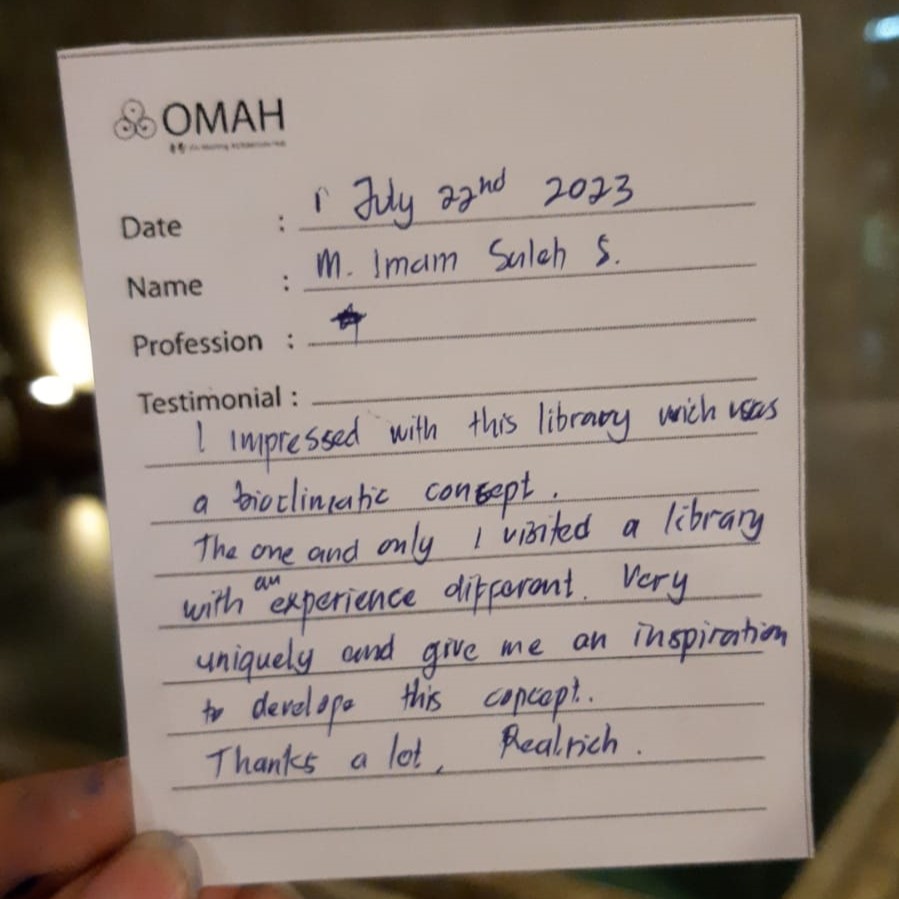 OMAH
Date : July 22nd 2023
Name : M. Imam Suleh S.
Profession :
Testimonial :
I impressed with this library wich uses
a bioclimatic consept.
The one and only I visited a library
with an experience different. Very
uniquely and give me an inspiration
to develope this concept.
Thanks a lot, Realrich.